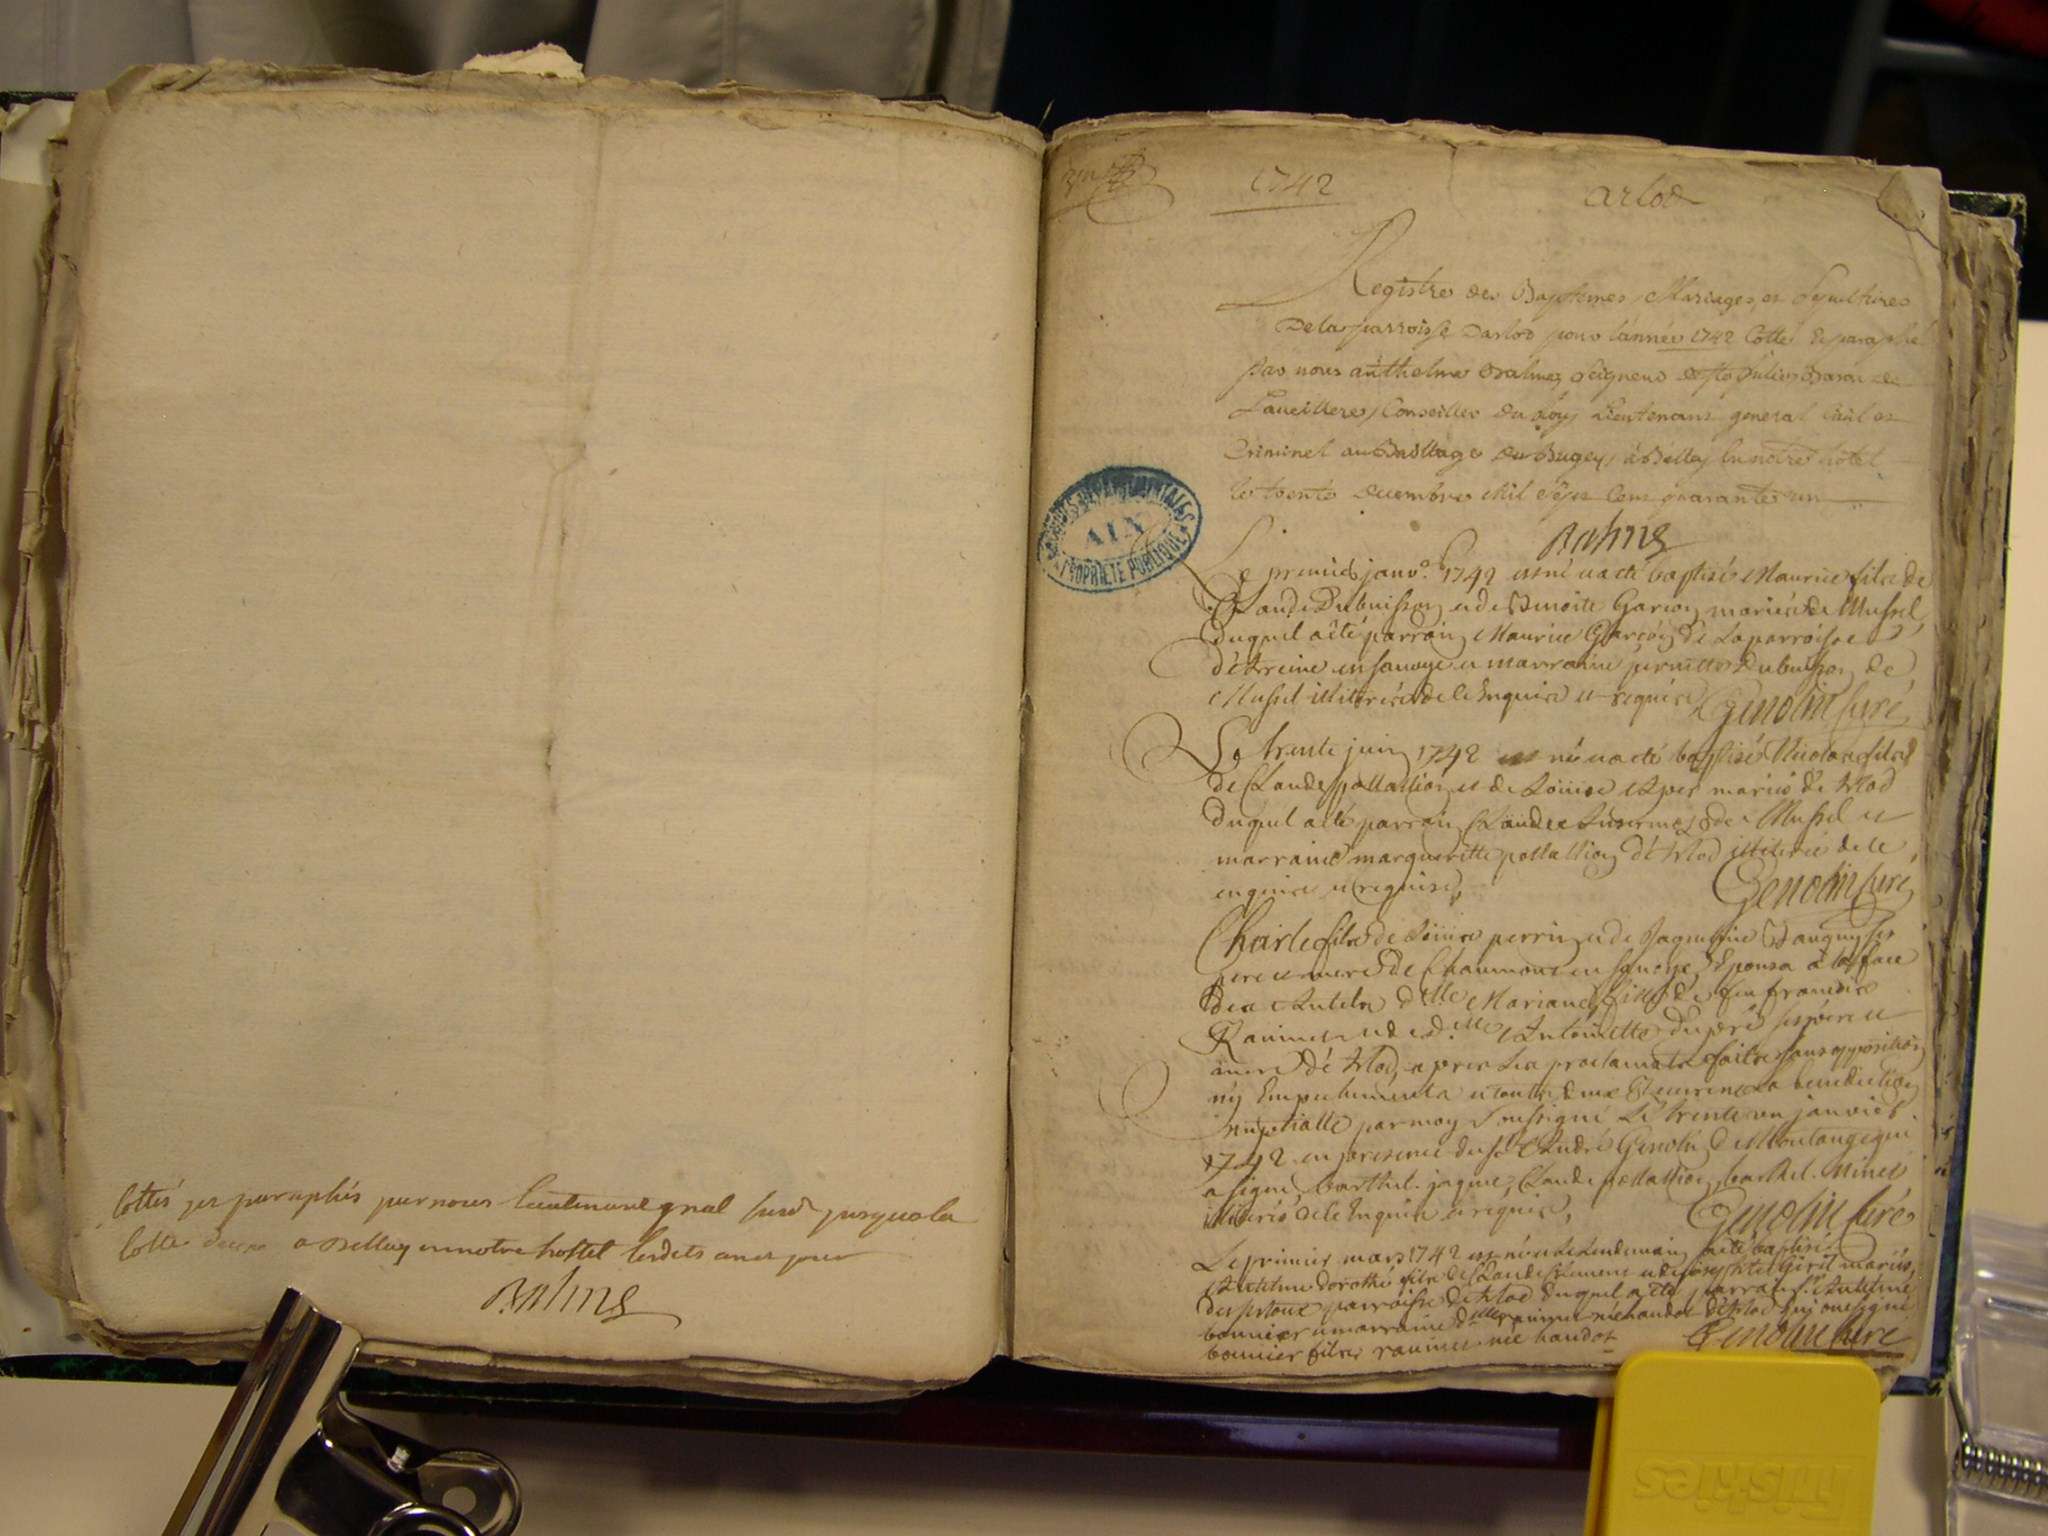 Cottés et paraphés par nous lieutenant gnal susd jusqu'a la
Cotte a Belley en notre hostel lesdits an et jour
Balme
1742
arlod
Registre des Baptemes, Mariages, et Sepultures
De la parroisse Darlod pour l'année 1742 Cotté & paraphé
Par nous anthelme Balme, Seigneur de Ste Julie, Baron de
Conseiller du Roy Lieutenant general Civil et
Criminel au Baillage du Bugey, à Belley En notre hotel
le trente decembre Mil Sept Cent quarante un
Balme
ARCHIVES DEPARTEMENTALES
AIN
PROPRIETE PUBLIQUE
Le premier janv. 1742 est né et a eté baptisé Maurice fils de
Claude Dubuisson et de Benoite Garcon mariés de Mussel
duquel a eté parrain Maurice Garcon de La parroisse
en savoye et marraine pernette Dubuisson de
Mussel illiterés de ce Enquis et requis Genolin Curé
Le trente juin 1742 est né et a eté baptisé Nicolas fils
de Claude pollallion et de Louise mariés de Arlod
duquel a eté parrain Claude de Mussel et
marraine margueritte pollallion de Arlod illiterés de ce
enquis et requis, Genolin Curé
Charle fils de perrin et de Jaqueline ses
pere et mere de Chaumont en savoye, Epousa à la face
des Autels dlle Mariane fille de feu francois
Ravinet et de d.lle Antoinette Dupré ses père et
mere de Arlod, apres les proclamats faites sans opposition
ny Empechements et toutes deux Receurent la benediction
nuptialle par moy soussigné Le trente un janvier
1742 en presence du sr André Genolin de Montange qui
a signé, Barthel. jaque, Claude pollallion, barthel. Minet
illiterés de ce Enquis et requis, Genolin Curé
Le premier mars 1742 est né et le Lendemain a eté baptisé
Antelme Dorothé fils de Claude Clement et de mariés
parroisse de Arlod duquel a eté parrain Sr Antelme
bonnier et marraine dlle ravinet née haudot de Arlod qui ont signé
bonnier fils, ravinet née haudot Genolin Curé
Friskies